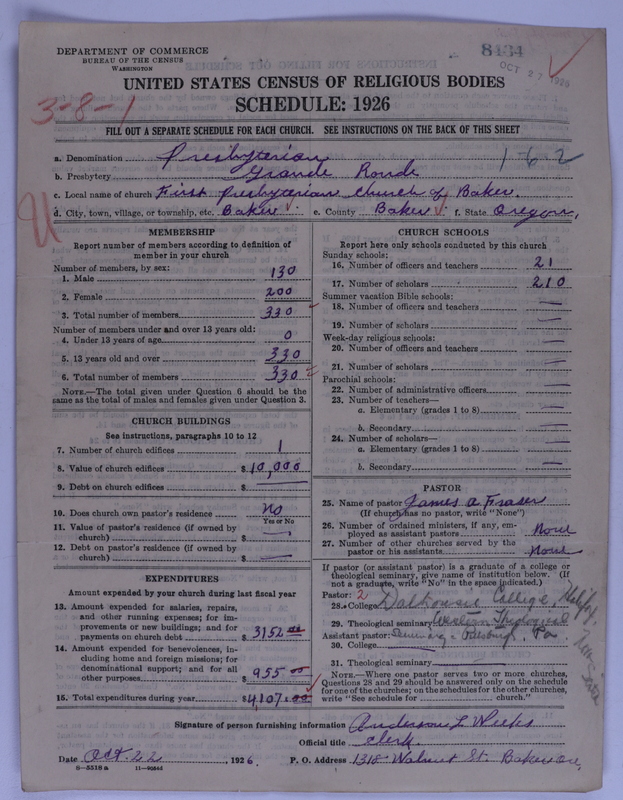 DEPARTMENT OF COMMERCE
BUREAU OF THE CENSUS
WASHINGTON
8434
OCT 27 1926
UNITED STATES CENSUS OF RELIGIOUS BODIES
SCHEDULE: 1926
3-8-1
FILL OUT A SEPARATE SCHEDULE FOR EACH CHURCH. SEE INSTRUCTIONS ON THE BACK OF THIS SHEET
a. Denomination Presbyterian 1-6-2
b. Presbytery Grande Ronde
c. Local name of church First Presbyterian Church of Baker.
d. City, town, village, or township, etc. Baker e. County Baker f. State Oregon,
MEMBERSHIP
Report number of members according to definition of
member in your church
Number of members, by sex:
1. Male 130
2. Female 200
3. Total number of members 330
Number of members under and over 13 years old:
4. Under 13 years of age 0
5. 13 years old and over 330
6. Total number of members 330
NOTE.—The total given under Question 6 should be the
same as the total of males and females given under Question 3.
CHURCH BUILDINGS
See instructions, paragraphs 10 to 12
7. Number of church edifices 1
8. Value of church edifices $10,000
9. Debt on church edifices $ —
10. Does church own pastor's residence No
Yes or No
11. Value of pastor's residence (if owned by
church) $ —
12. Debt on pastor's residence (if owned by
church) $ —
EXPENDITURES
Amount expended by your church during last fiscal year
13. Amount expended for salaries, repairs,
and other running expenses; for im-
provements or new buildings; and for
payments on church debt $3152.00
14. Amount expended for benevolences, in-
cluding home and foreign missions; for
denominational support; and for all
other purposes $955.00
15. Total expenditures during year $4107.00
CHURCH SCHOOLS
Report here only schools conducted by this church
Sunday schools:
16. Number of officers and teachers 21
17. Number of scholars 210
Summer vacation Bible schools:
18. Number of officers and teachers —
19. Number of scholars —
Week-day religious schools:
20. Number of officers and teachers —
21. Number of scholars —
Parochial schools:
22. Number of administrative officers —
23. Number of teachers—
a. Elementary (grades 1 to 8) —
b. Secondary —
24. Number of scholars—
a. Elementary (grades 1 to 8) —
b. Secondary —
PASTOR
25. Name of pastor James A Fraser
(If church has no pastor, write "None")
26. Number of ordained ministers, if any, em-
ployed as assistant pastors None
27. Number of other churches served by the
pastor or his assistants None
If pastor (or assistant pastor) is a graduate of a college or
theological seminary, give name of institution below. (If
not a graduate, write "No" in the space indicated.)
Pastor: 2
28. College Dalhousie College, Halifax,
29. Theological seminary Western Theological
Assistant pastor: Seminary - Pittsburgh, Pa.
30. College
31. Theological seminary
NOTE.—Where one pastor serves two or more churches,
Questions 28 and 29 should be answered only on the schedule
for one of the churches; on the schedules for the other churches,
write "See schedule for church."
Signature of person furnishing information Anderson L Weeks
Official title Clerk.
Date Oct. 22, 1926. P. O. Address 1318 Walnut St. Baker Ore,
8—5518 a